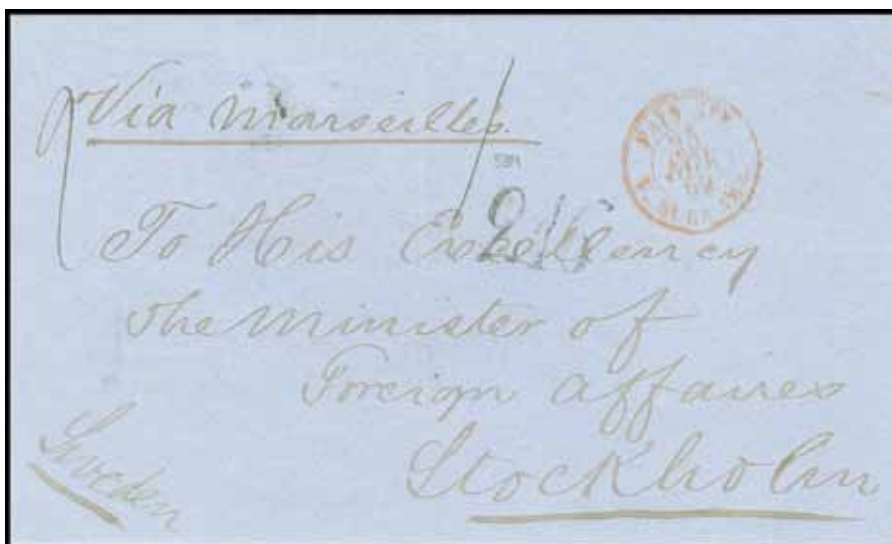 Via Marseilles.
To His Excellency
The Minister of
Foreign Affaires
Stockholm
Sweden